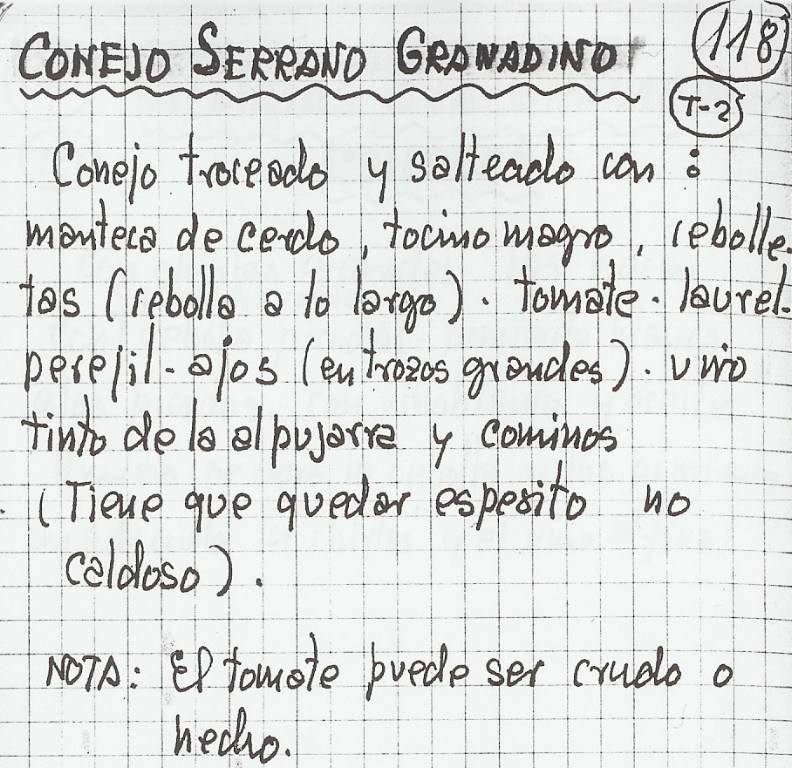 CONEJO SERRANO GRANADINO 118
T-2
Conejo troceado y salteado con :
manteca de cerdo, tocino magro, cebolle-
tas (cebolla a lo largo). tomate. laurel.
perejil - ajos (en trozos grandes). vino
tinto de la alpujarra y cominos
(Tiene que quedar espesito no
caldoso).
NOTA: El tomate puede ser crudo o
hecho.